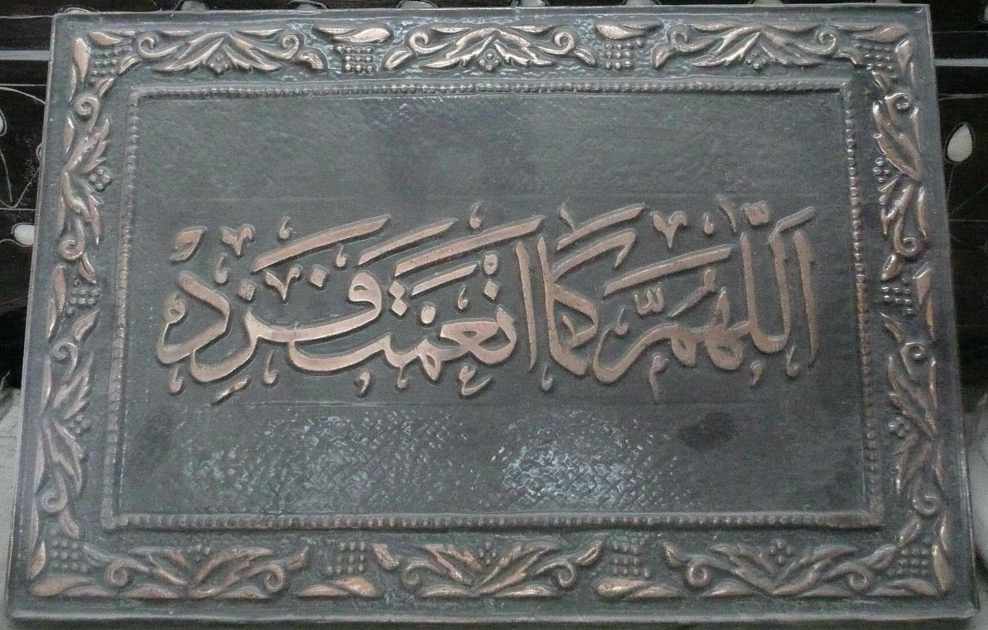 اللّهمّ كما انعمت فزد